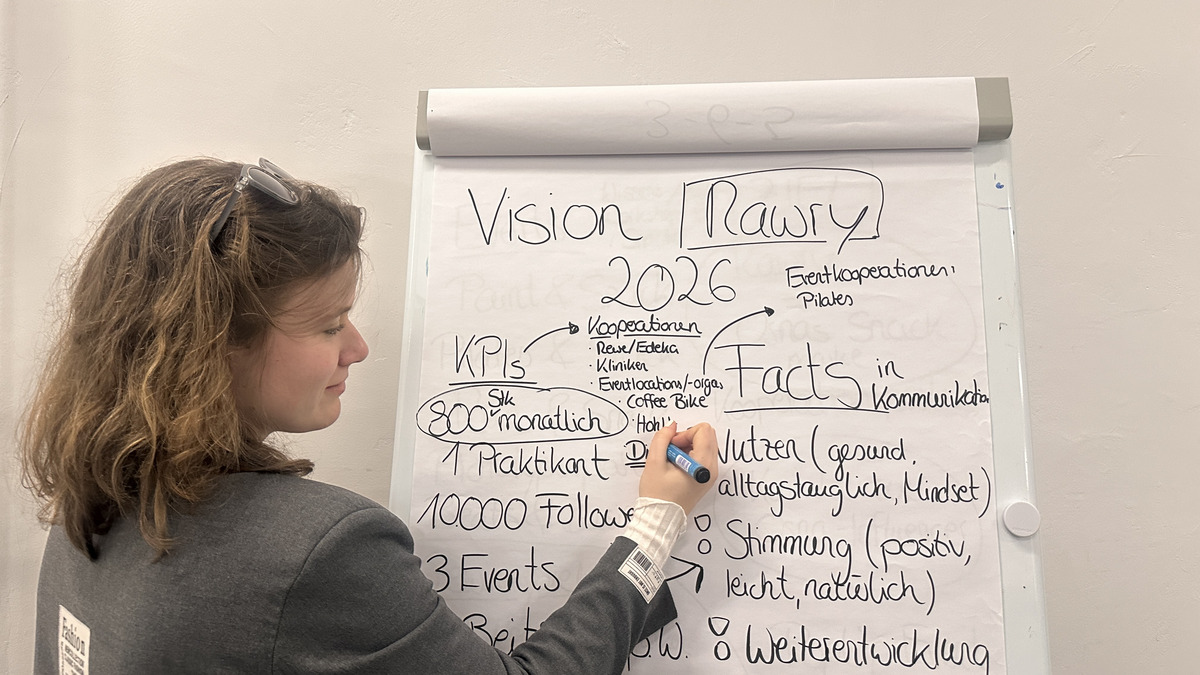 Vision Rawry
2026
Eventkooperationen:
Pilates
KPIs
Kooperationen
· Rewe/Edeka
· Kliniken
· Eventlocations/-orgas
· Coffee Bike
800 Stk monatlich
1 Praktikant
10.000
3 Events
Facts in
Kommunikation
Nutzen (gesund,
alltagstauglich, Mindset)
Stimmung (positiv,
leicht, natürlich)
Weiterentwicklung
Fashion